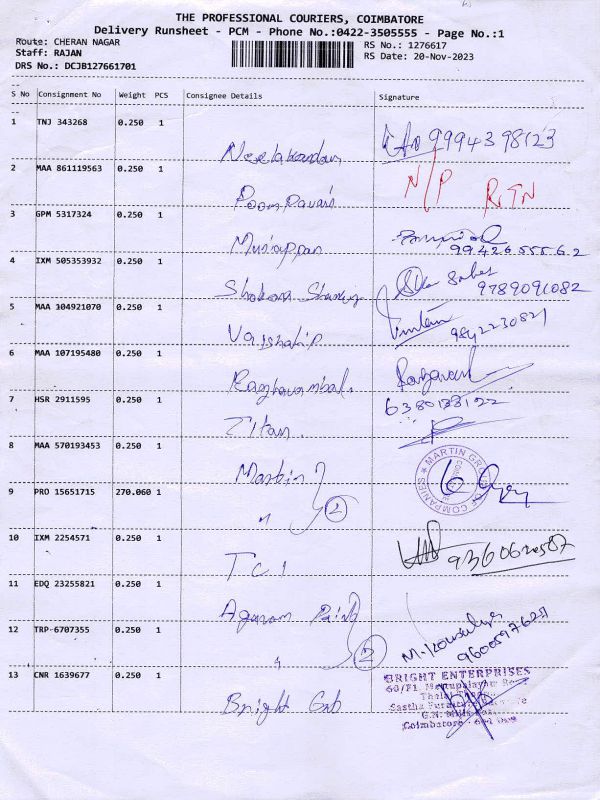 THE PROFESSIONAL COURIERS, COIMBATORE
Delivery Runsheet - PCM - Phone No.:0422-3505555 - Page No.:1
Route: CHERAN NAGAR RS No.: 1276617
Staff: RAJAN RS Date: 20-Nov-2023
DRS No.: DCJB127661701
S No Consignment No Weight PCS Consignee Details Signature
1 TNJ 343268 0.250 1 Neelakandan 9994398123
2 MAA 861119563 0.250 1 N/P RTN
3 GPM 5317324 0.250 1 Murugappan 9942655562
4 IXM 505353932 0.250 1 9789091082
5 MAA 104921070 0.250 1 9842230821
6 MAA 107195480 0.250 1
7 HSR 2911595 0.250 1 Titan. 6380138122
8 MAA 570193453 0.250 1 Martin MARTIN GROUP OF COMPANIES
9 PRO 15651715 270.060 1 " 2
10 IXM 2254571 0.250 1 TCI
11 EDQ 23255821 0.250 1 Agaram Paint
12 TRP 6707355 0.250 1 " 2 9600597627
13 CNR 1639677 0.250 1 Bright
BRIGHT ENTERPRISES
Coimbatore